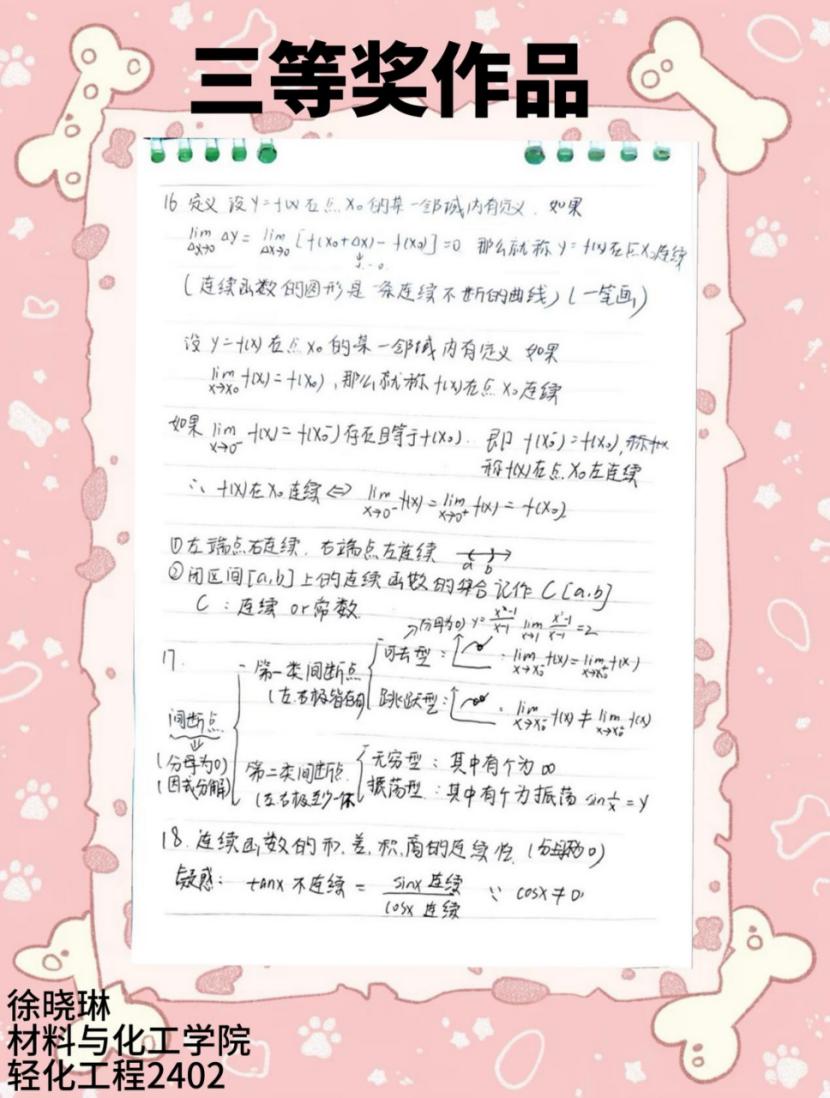 三等奖作品
16 定义 设 y=f(x) 在点 x₀ 的某一邻域内有定义. 如果
lim Δx→0 Δy = lim Δx→0 [f(x₀+Δx)-f(x₀)]=0 那么就称 y=f(x)在点x₀连续
(连续函数的图形是一条连续不断的曲线)(一笔画)
设 y=f(x) 在点 x₀ 的某一邻域内有定义 如果
lim x→x₀ f(x)=f(x₀),那么就称 f(x)在点 x₀ 连续
如果 lim x→0⁻ f(x)=f(x₀⁻)存在且等于f(x₀). 即 f(x₀⁻)=f(x₀),
称f(x)在点x₀左连续
∴ f(x)在x₀连续⇔ lim x→0⁻ f(x)=lim x→0⁺ f(x)=f(x₀)
①左端点右连续. 右端点左连续
a b
②闭区间[a,b]上的连续函数的集合记作 C[a,b]
C:连续 or 常数
分母为0) y=x²-1/x-1 lim x→1 x²-1/x-1=2
17.
第一类间断点
可去型: lim x→x₀⁻ f(x)=lim x→x₀⁺ f(x)
跳跃型: lim x→x₀⁻ f(x)≠lim x→x₀⁺ f(x)
间断点
(分母为0)
(因式分解)
第二类间断点
无穷型:其中有个为∞
振荡型:其中有个为振荡 sin 1/x=y
18. 连续函数的和.差.积.商的连续性.
疑惑: tanx 不连续 = sinx 连续/cosx 连续 ∵ cosx≠0
徐晓琳
材料与化工学院
轻化工程2402